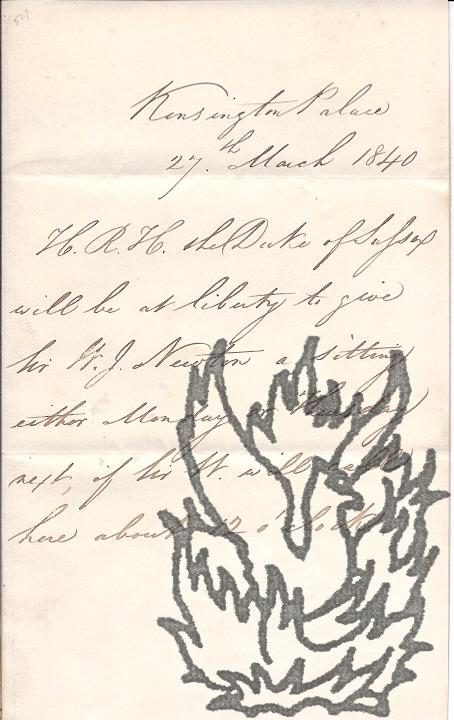 Kensington Palace
27th March 1840
H. R. H. the Duke of Sussex
will be at liberty to give
Sir W. J. Newton a sitting
either Monday or Thursday
next, if Sir W. will call
here about 12 o'clock